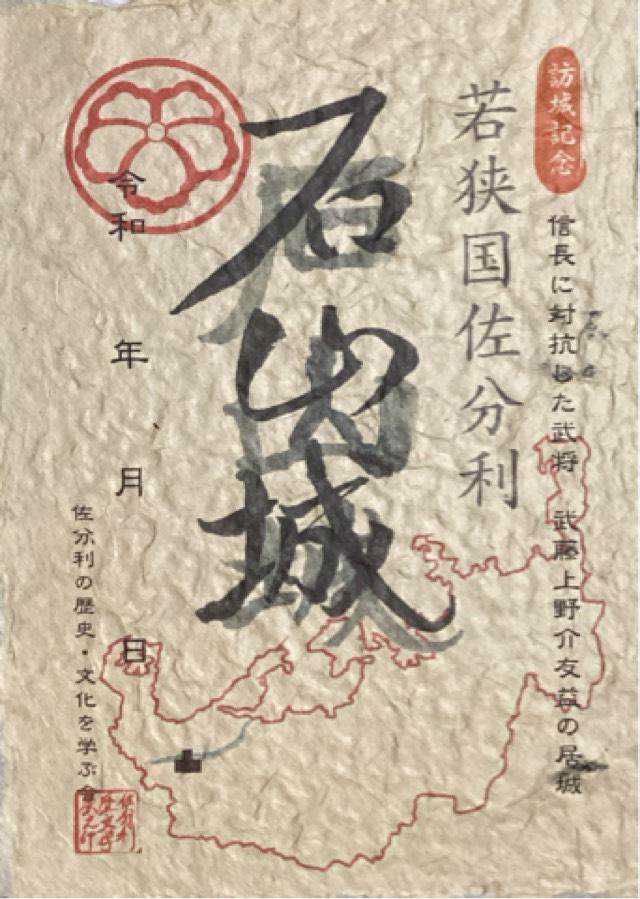 訪城記念
信長に対抗した武将 武藤上野介友益の居城
若狭国佐分利
石山城
令和 年 月 日
佐分利の歴史・文化を学ぶ会